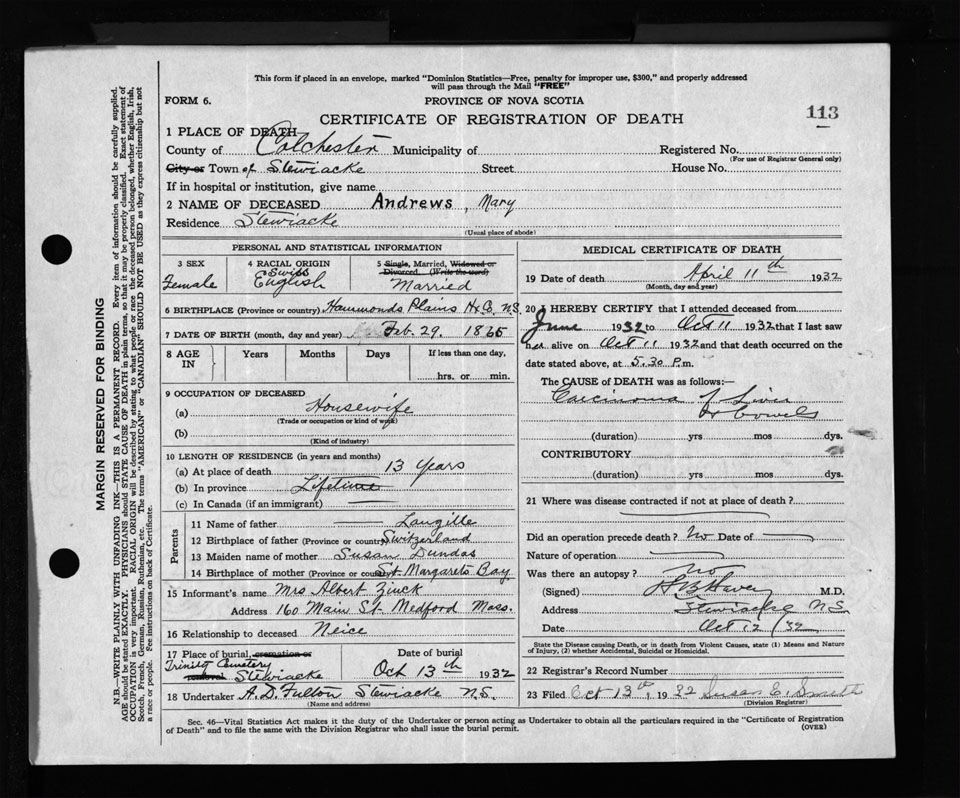 This form if placed in an envelope, marked "Dominion Statistics—Free, penalty for improper use, $300," and properly addressed
will pass through the Mail "FREE"
FORM 6.
PROVINCE OF NOVA SCOTIA
113
CERTIFICATE OF REGISTRATION OF DEATH
1 PLACE OF DEATH
County of Colchester Municipality of Registered No.
(For use of Registrar General only)
City or Town of Stewiacke Street House No.
If in hospital or institution, give name
2 NAME OF DECEASED Andrews, Mary
Residence Stewiacke
(Usual place of abode)
PERSONAL AND STATISTICAL INFORMATION
3 SEX 4 RACIAL ORIGIN 5 Single, Married, Widowed or
Divorced. (Write the word)
Swiss
Female English Married
6 BIRTHPLACE (Province or country) Hammonds Plains Hx Co. N.S.
7 DATE OF BIRTH (month, day and year) Feb. 29. 1865
8 AGE IN Years Months Days If less than one day,
hrs. or min.
9 OCCUPATION OF DECEASED
(a) Housewife
(Trade or occupation or kind of work)
(b)
(Kind of industry)
10 LENGTH OF RESIDENCE (in years and months)
(a) At place of death 13 Years
(b) In province Lifetime
(c) In Canada (if an immigrant)
Parents
11 Name of father Langille
12 Birthplace of father (Province or country) Switzerland
13 Maiden name of mother Susan Dundas
14 Birthplace of mother (Province or country) St. Margarets Bay
15 Informant's name Mrs Albert Zinck
Address 160 Main St. Medford Mass.
16 Relationship to deceased Neice
17 Place of burial, cremation or removal Date of burial
Trinity Cemetery
Stewiacke Oct 13th 1932
18 Undertaker A. D. Fulton Stewiacke N.S.
(Name and address)
MEDICAL CERTIFICATE OF DEATH
19 Date of death April 11th 1932
(Month, day and year)
20 I HEREBY CERTIFY that I attended deceased from
June 1932 to Oct 11 1932 that I last saw
her alive on Oct 11 1932 and that death occurred on the
date stated above, at 5.30 P.m.
The CAUSE of DEATH was as follows:—
Carcinoma of Liver
& Bowels
(duration) yrs mos dys.
CONTRIBUTORY
(duration) yrs mos dys.
21 Where was disease contracted if not at place of death?
Did an operation precede death? No Date of
Nature of operation
Was there an autopsy? No
(Signed) M.D.
Address Stewiacke N.S.
Date Oct 12/32
State the Disease causing Death, or in death from Violent Causes, state (1) Means and Nature
of Injury, (2) whether Accidental, Suicidal or Homicidal.
22 Registrar's Record Number
23 Filed Oct 13th, 1932 Susan E. Smith
(Division Registrar)
Sec. 46—Vital Statistics Act makes it the duty of the Undertaker or person acting as Undertaker to obtain all the particulars required in the "Certificate of Registration
of Death" and to file the same with the Division Registrar who shall issue the burial permit.
(OVER)
MARGIN RESERVED FOR BINDING
N.B.—WRITE PLAINLY WITH UNFADING INK—THIS IS A PERMANENT RECORD. Every item of information should be carefully supplied.
AGE should be stated EXACTLY. PHYSICIANS should STATE CAUSE OF DEATH in plain terms, so that it may be properly classified. Exact statement of
OCCUPATION is very important. RACIAL ORIGIN will be described by stating to what people or race the deceased person belonged, whether English, Irish,
Scotch, French, German, Russian, Ruthenian, etc. The terms "AMERICAN" or "CANADIAN" SHOULD NOT BE USED as they express citizenship but not
a race or people. Fee instructions on back of Certificate.